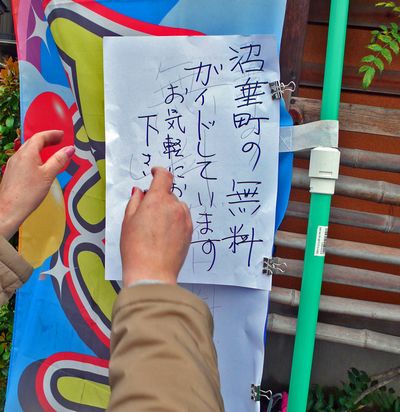 沼垂町の無料
ガイドしています
お気軽にお
下さい